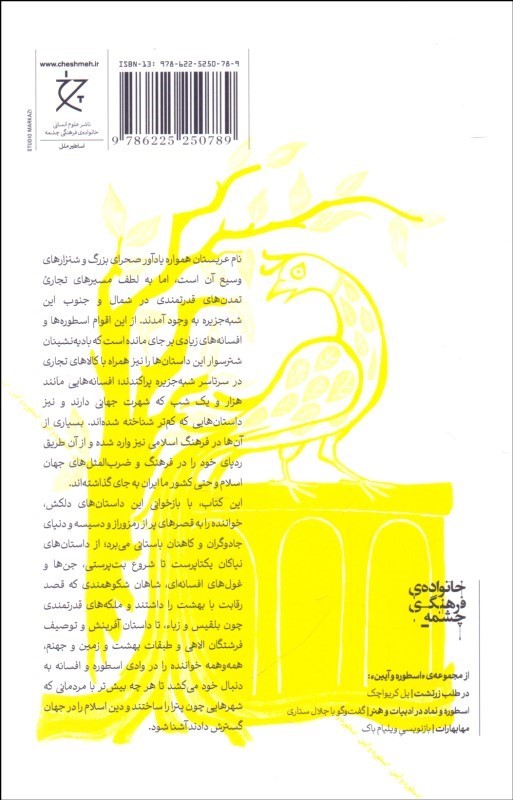 ISBN-13: 978-622-5250-78-9
9 786225 250789
www.cheshmeh.ir
ناشر علوم انسانی
خانواده‌ی فرهنگی چشمه
اساطیر ملل
STUDIO MARKAZI
نام عربستان همواره یادآور صحرای بزرگ و شنزارهای
وسیع آن است، اما به لطف مسیرهای تجاری
تمدن‌های قدرتمندی در شمال و جنوب این
شبه‌جزیره به وجود آمدند. از این اقوام اسطوره‌ها و
افسانه‌های زیادی بر جای مانده است که بادیه‌نشینان
شترسوار این داستان‌ها را نیز همراه با کالاهای تجاری
در سرتاسر شبه‌جزیره پراکندند؛ افسانه‌هایی مانند
هزار و یک شب که شهرت جهانی دارند و نیز
داستان‌هایی که کم‌تر شناخته شده‌اند. بسیاری از
آن‌ها در فرهنگ اسلامی نیز وارد شده و از آن طریق
ردپای خود را در فرهنگ و ضرب‌المثل‌های جهان
اسلام و حتی کشور ما ایران به جای گذاشته‌اند.
این کتاب، با بازخوانی این داستان‌های دلکش،
خواننده را به قصرهای پر از رمزوراز و دسیسه و دنیای
جادوگران و کاهنان باستانی می‌برد؛ از داستان‌های
نیاکان یکتاپرست تا شروع بت‌پرستی، جن‌ها و
غول‌های افسانه‌ای، شاهان شکوهمندی که قصد
رقابت با بهشت را داشتند و ملکه‌های قدرتمندی
چون بلقیس و زباء، تا داستان آفرینش و توصیف
فرشتگان الاهی و طبقات بهشت و زمین و جهنم،
همه‌وهمه خواننده را در وادی اسطوره و افسانه به
دنبال خود می‌کشد تا هر چه بیش‌تر با مردمانی که
شهرهایی چون پترا را ساختند و دین اسلام را در جهان
گسترش دادند آشنا شود.
خانواده‌ی
فرهنگی
چشمه
از مجموعه‌ی «اسطوره و آیین»:
در طلب زرتشت | پل کریواچک
اسطوره و نماد در ادبیات و هنر | گفت‌وگو با جلال ستاری
مهابهارات | بازنویسی ویلیام باک